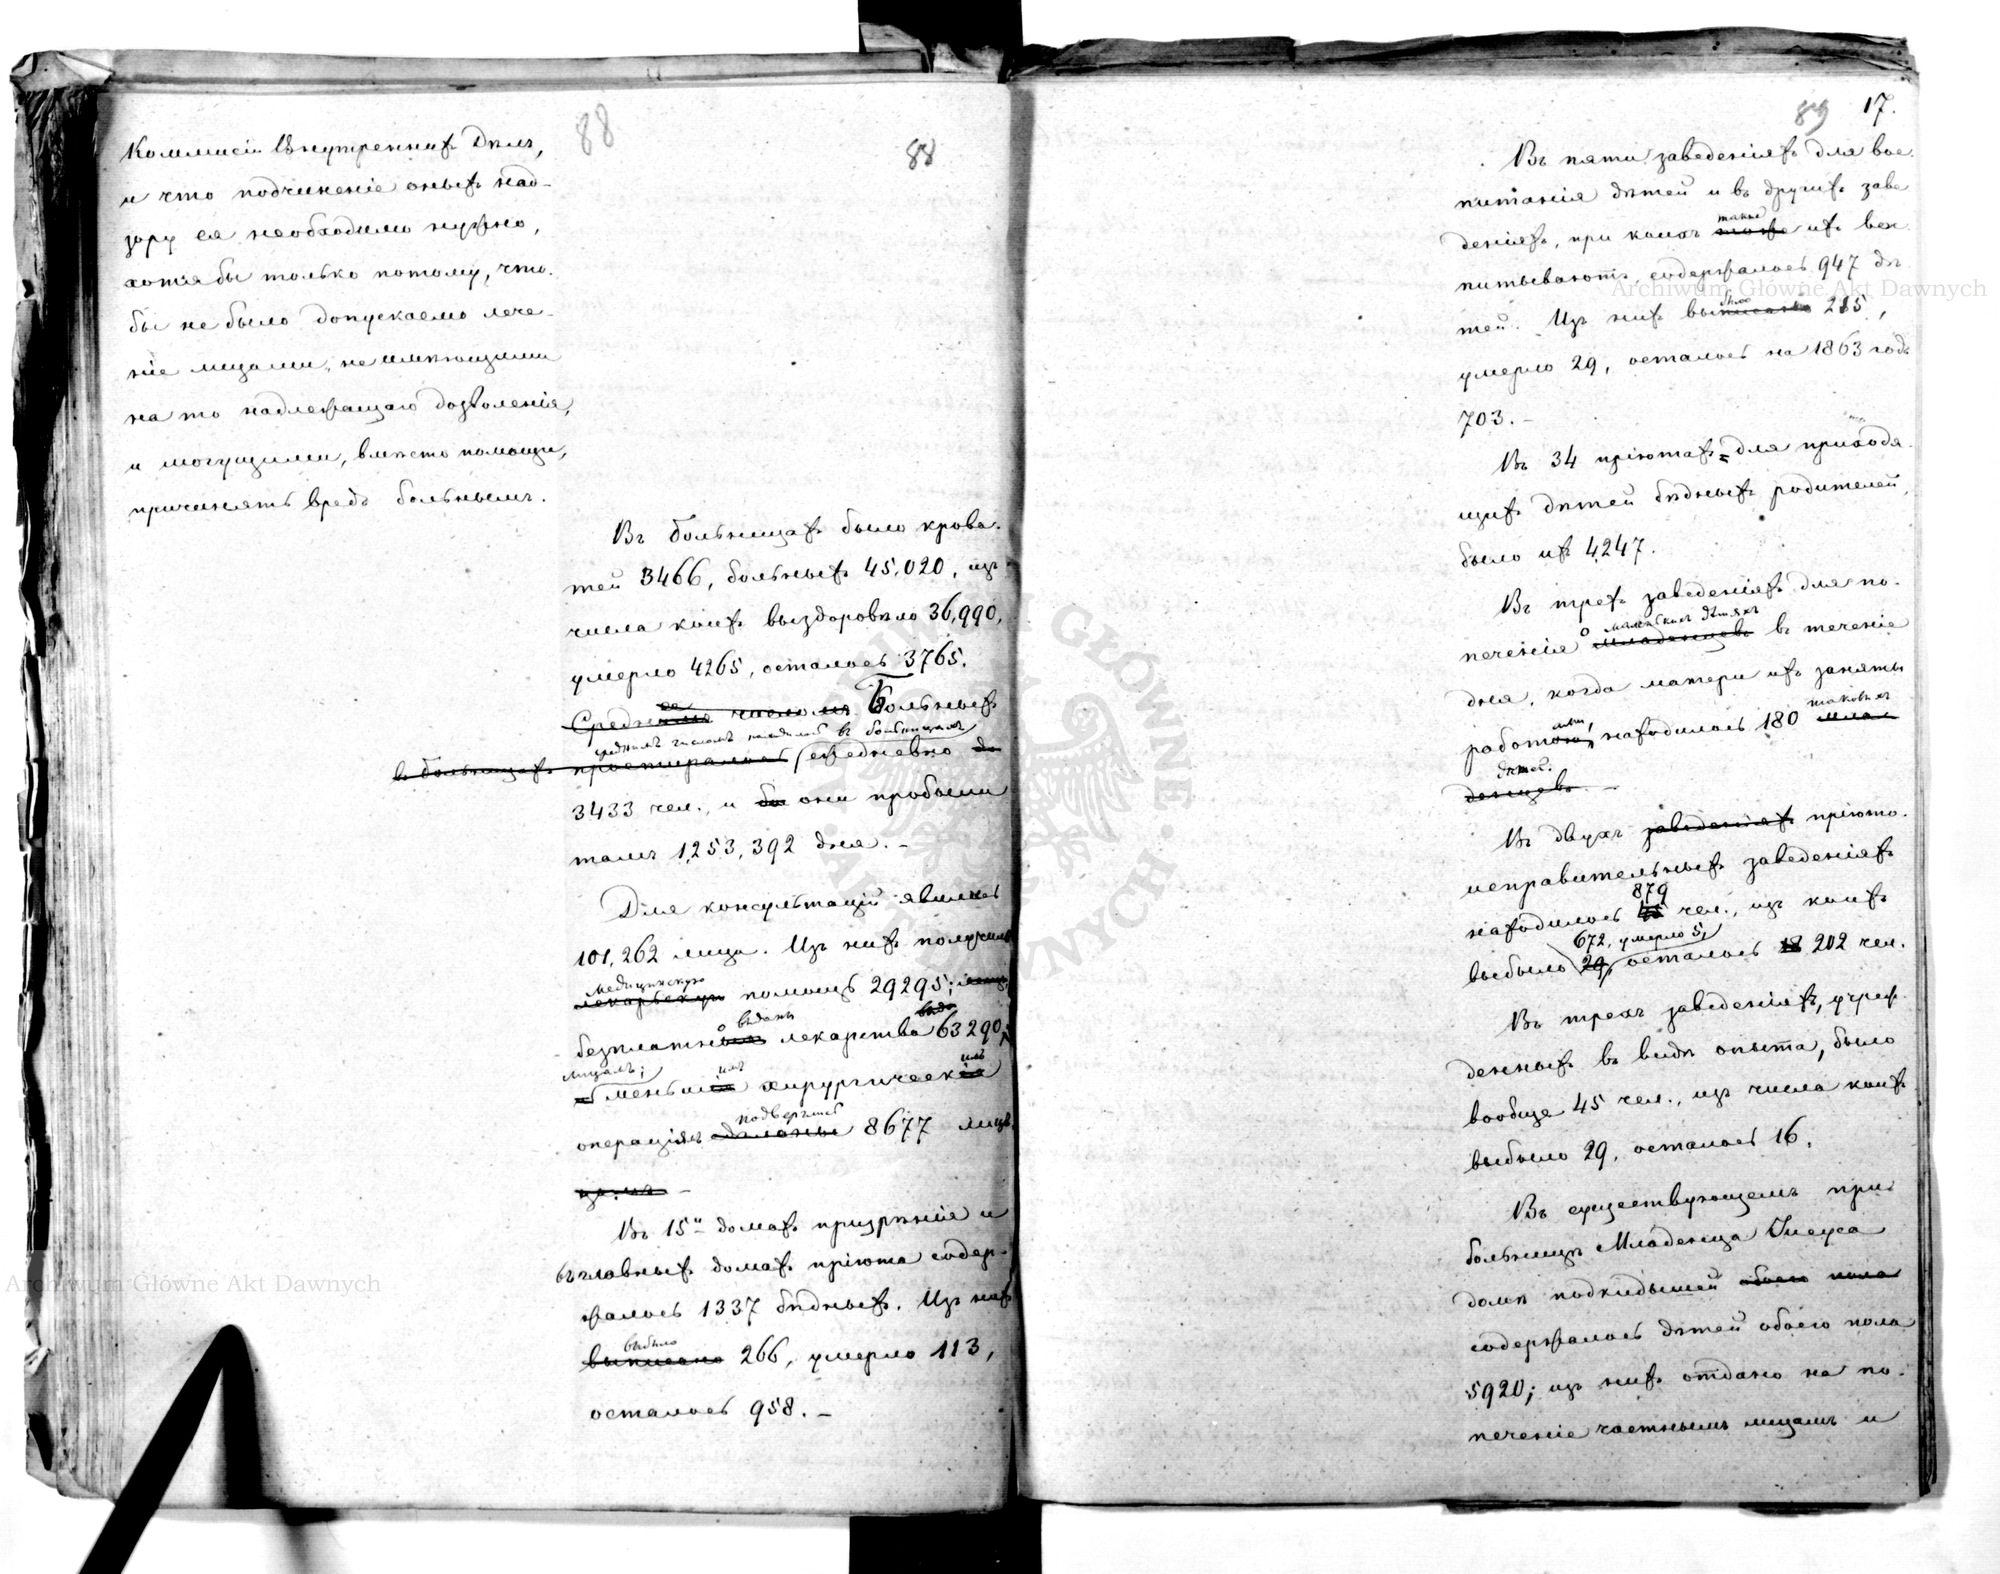 88
88
Коммисіи Внутреннихъ Дѣлъ,
и что подчиненіе оныхъ над-
зору ея необходимо нужно,
хотя бы только потому, что-
бы не было допускаемо лече-
ніе лицами, не имѣющими
на то надлежащаго дозволенія,
и могущими, вмѣсто помощи,
причинять вредъ больнымъ.
Въ больницахъ было крова-
тей 3466, больныхъ 45,020, изъ
числа коихъ выздоровѣло 36,990,
умерло 4265, осталось 3765.
Среднее число Больныхъ
среднимъ числомъ находилось въ больницахъ
въ больницахъ простиралось ежедневно до
3433 чел., и они пробыли
тамъ 1,253,392 дня. –
Для консультацій явилось
101,262 лица. Изъ нихъ получили
медицинскую
лекарскую помощь 29295;
о выдано
безплатны лекарства 63290
лицамъ; имъ имъ
меньшія хирургическія
подверглись
операціямъ дѣланы 8677 лицъ
Въ 15и домахъ призрѣнія и
въ главныхъ домахъ пріюта содер-
жалось 1337 бѣдныхъ. Изъ нихъ
выбыло
выписано 266, умерло 113,
осталось 958. –
89 17.
Въ пяти заведеніяхъ для вос-
питанія дѣтей и въ другихъ заве
деніяхъ, при коихъ
также
тоже ихъ вос
питываютъ, содержалось 947 дѣ
тей. Изъ нихъ
было
выписано 215,
умерло 29, осталось на 1863 годъ
703. –
Въ 34 пріютахъ для приходя
щихъ дѣтей бѣдныхъ родителей,
было ихъ 4,247.
Въ трехъ заведеніяхъ для по-
о маленькихъ дѣтяхъ
печенія младенцевъ въ теченіе
дня, когда матери ихъ заняты
таковыхъ
работою, находилось 180 мла
дѣтей.
денцевъ. –
Въ двухъ заведеніяхъ пріюто-
исправительныхъ заведеніяхъ
879
находилось 45 чел., изъ коихъ
672, умерло 5,
выбыло 29, осталось 18 202 чел.
Въ трехъ заведеніяхъ, учреж
денныхъ въ видѣ опыта, было
вообще 45 чел., изъ числа коихъ
выбыло 29, осталось 16.
Въ существующемъ при
больницѣ Младенца Іисуса
домѣ подкидышей обоего пола
содержалось дѣтей обоего пола
5920; изъ нихъ отдано на по-
печеніе частнымъ лицамъ и
Archiwum Główne Akt Dawnych
Archiwum Główne Akt Dawnych